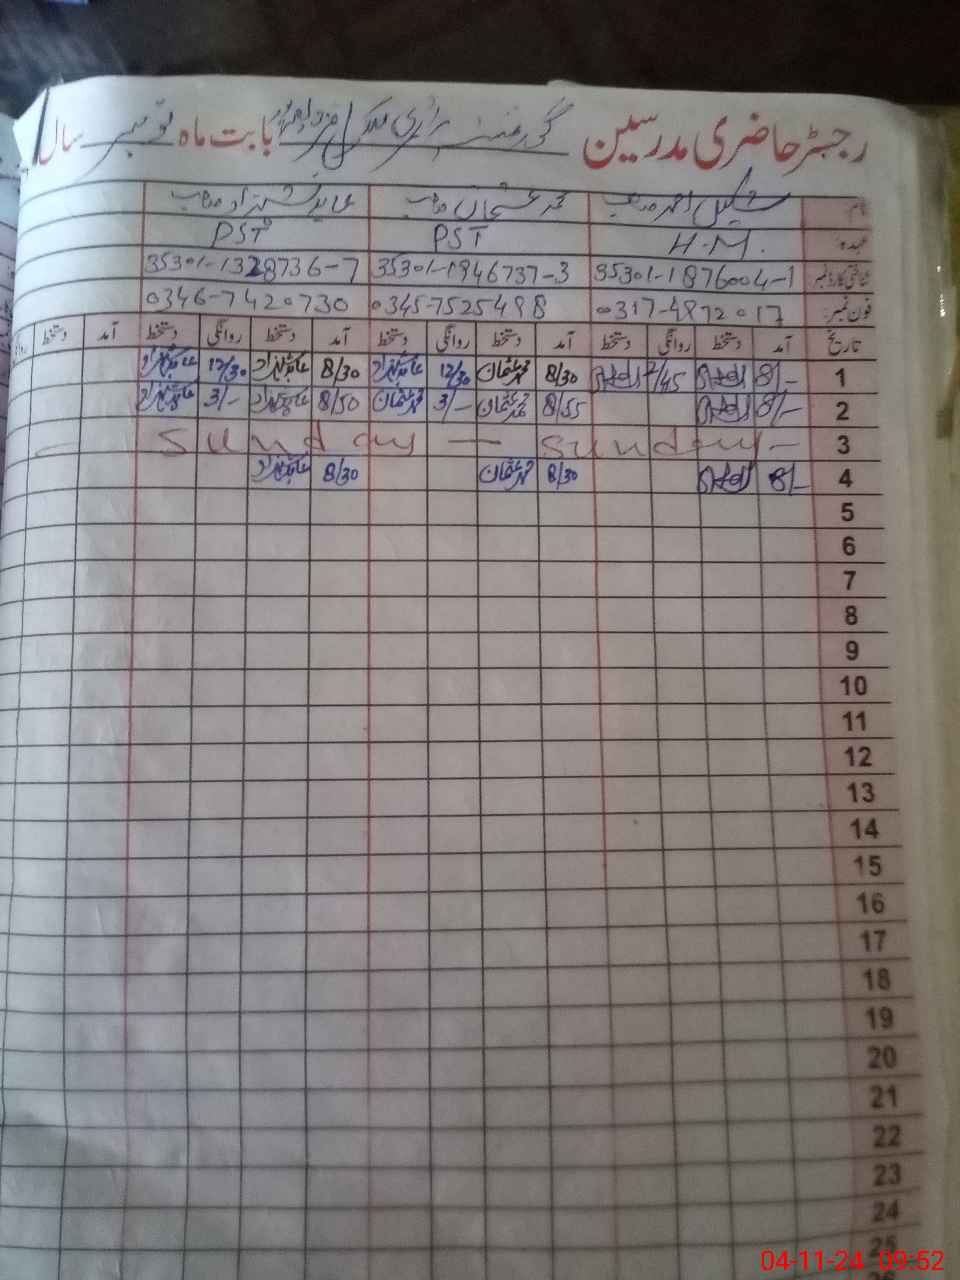 رجسٹر حاضری مدرسین گورنمنٹ پرائمری سکول بابت ماہ نومبر سال
نام شکیل احمد صاحب محمد عثمان صاحب عابد شہزاد صاحب
عہدہ H.M. PST PST
شناختی کارڈ نمبر 35301-1876004-1 35301-1946737-3 35301-1328736-7
فون نمبر 0317-4872017 0345-7525498 0346-7420730
تاریخ آمد دستخط روانگی دستخط آمد دستخط روانگی دستخط آمد دستخط روانگی دستخط آمد دستخط
1 8/- 8/30 محمد عثمان 12/30 8/30 عابد شہزاد 12/30 عابد شہزاد
2 8/- 8/55 محمد عثمان 3/- محمد عثمان 8/50 عابد شہزاد 3/- عابد شہزاد
3 Sunday — Sunday —
4 8/- 8/30 محمد عثمان 8/30 عابد شہزاد
5
6
7
8
9
10
11
12
13
14
15
16
17
18
19
20
21
22
23
24
25
04-11-24 09:52